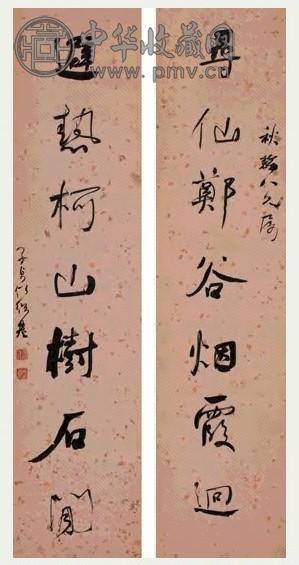 中华收藏网
www.pmv.cn
尋仙鄭谷烟霞迥
秋 八兄属
避熱柯山樹石閒
子貞何紹基